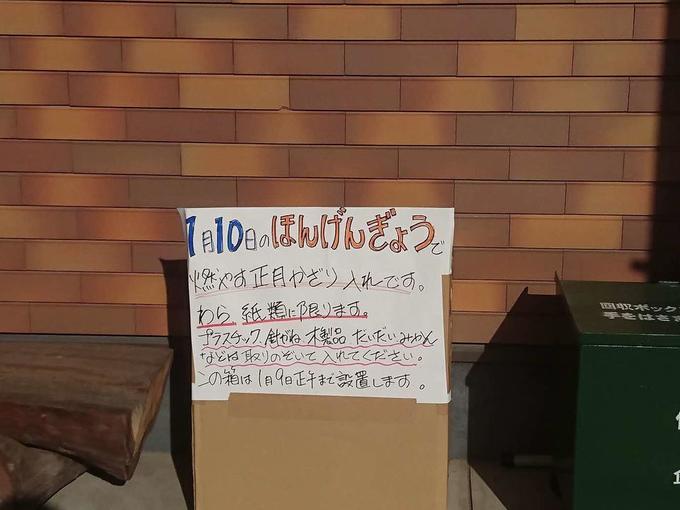 1月10日のほんげんぎょうで
燃やす正月かざり入れです。
わら、紙類に限ります。
プラスチック、針がね、木製品、だいだい、みかん
などは取りのぞいて入れてください。
この箱は1月9日正午まで設置します。
回収ボック
手をはさ